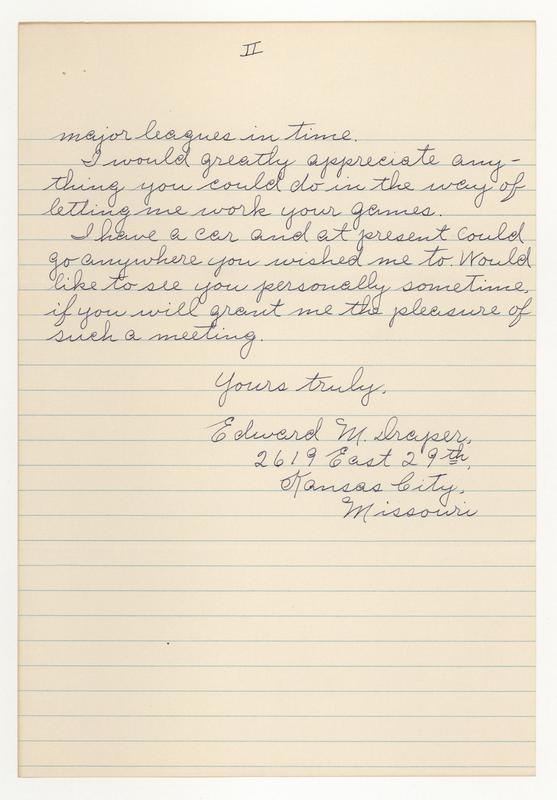 II
major leagues in time.
I would greatly appreciate any-
thing you could do in the way of
letting me work your games.
I have a car and at present could
go anywhere you wished me to. Would
like to see you personally sometime,
if you will grant me the pleasure of
such a meeting.
Yours truly,
Edward M. Draper,
2619 East 29th,
Kansas City,
Missouri